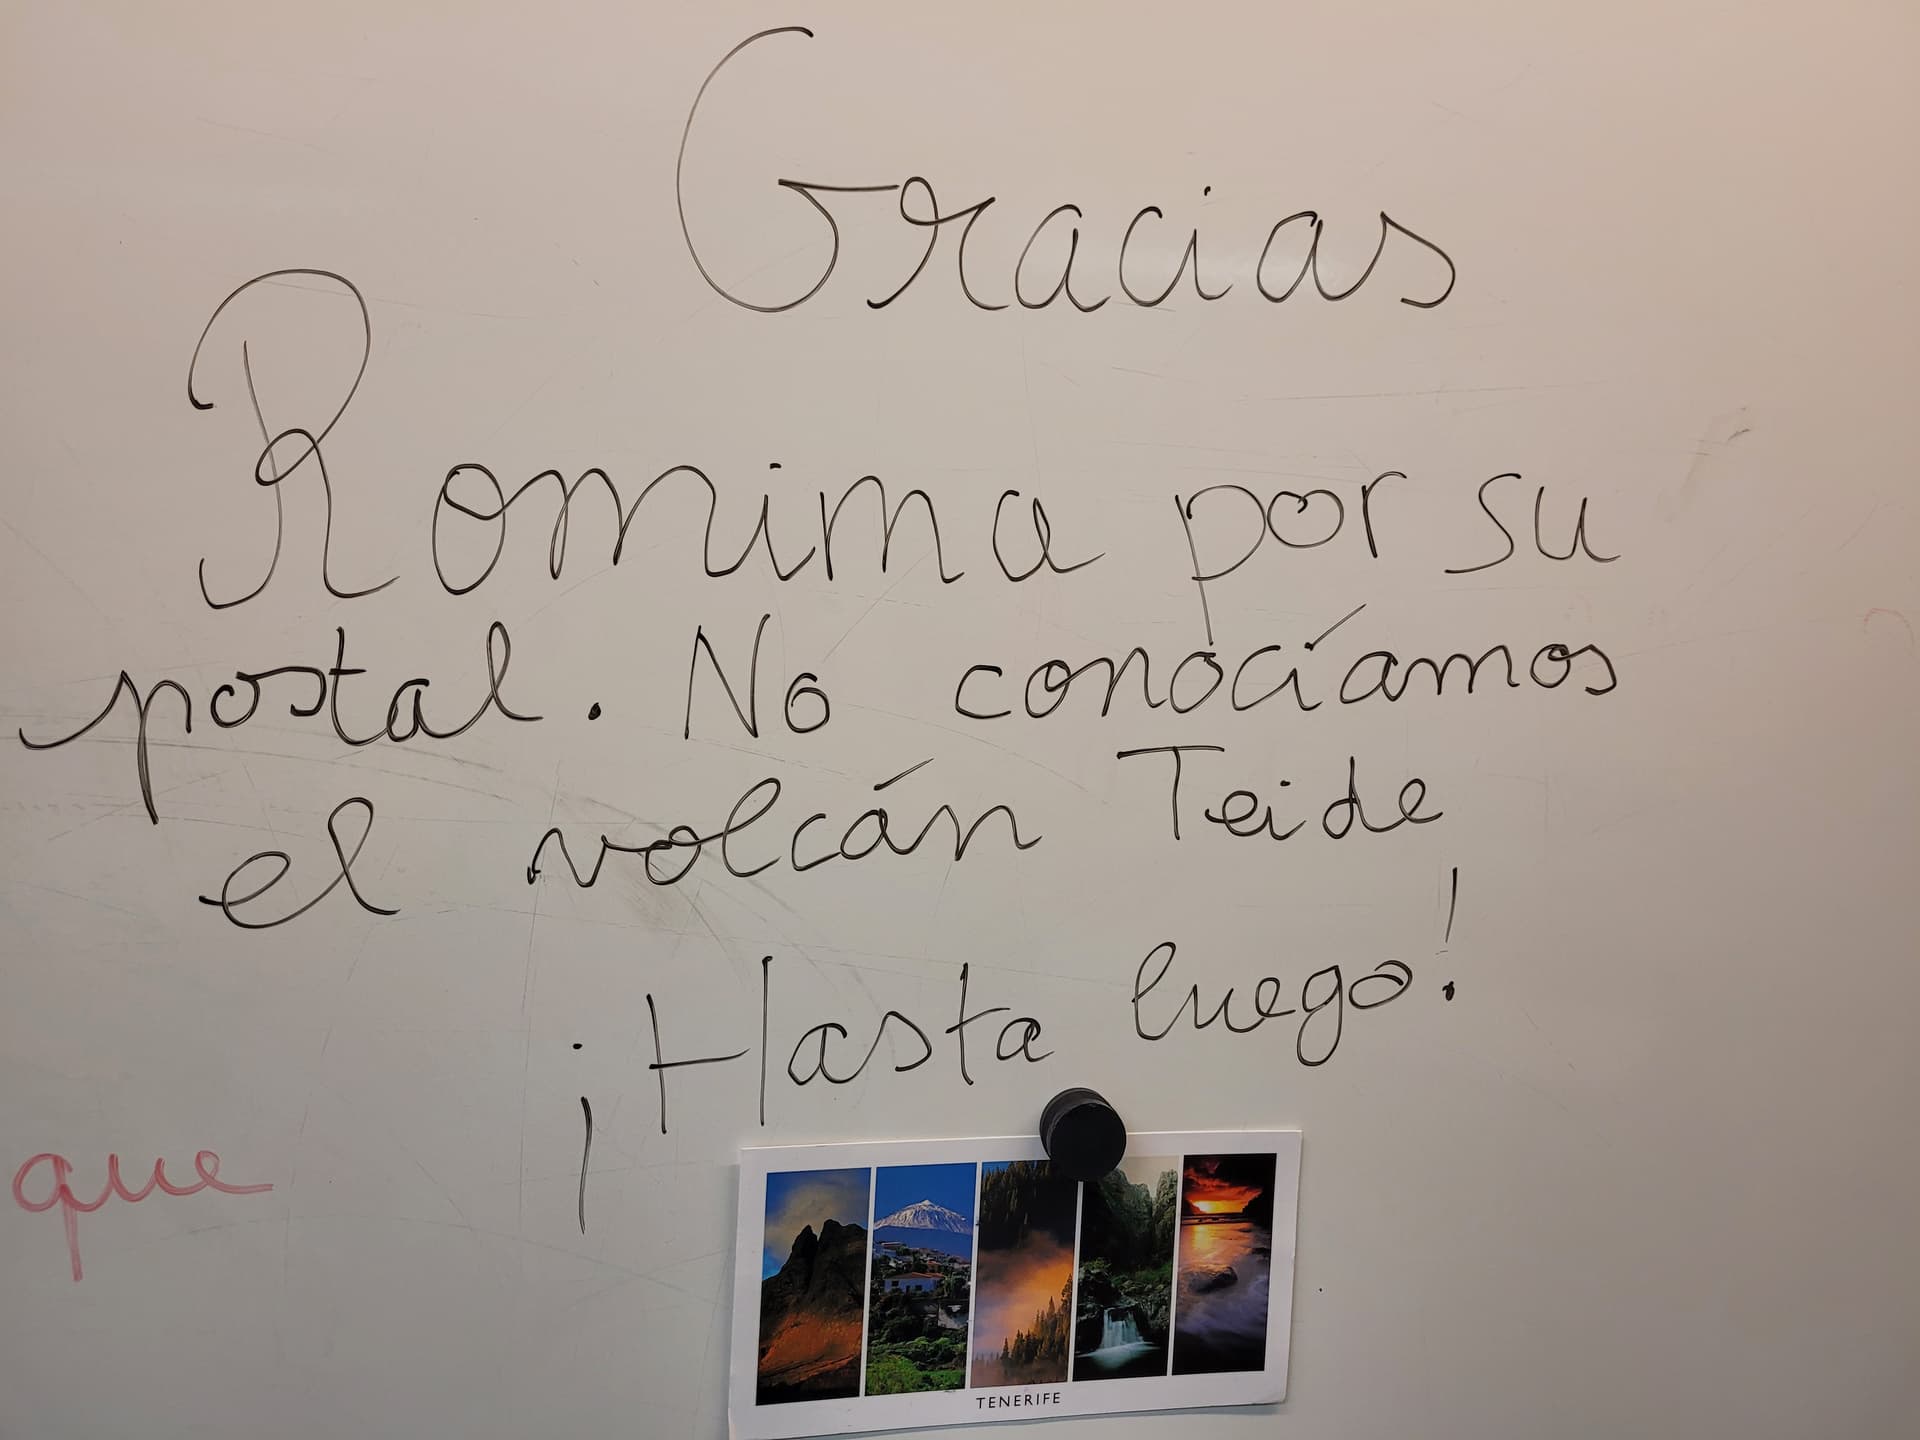 Gracias
Romina por su
postal. No conocíamos
el volcán Teide
¡Hasta luego!
que
TENERIFE